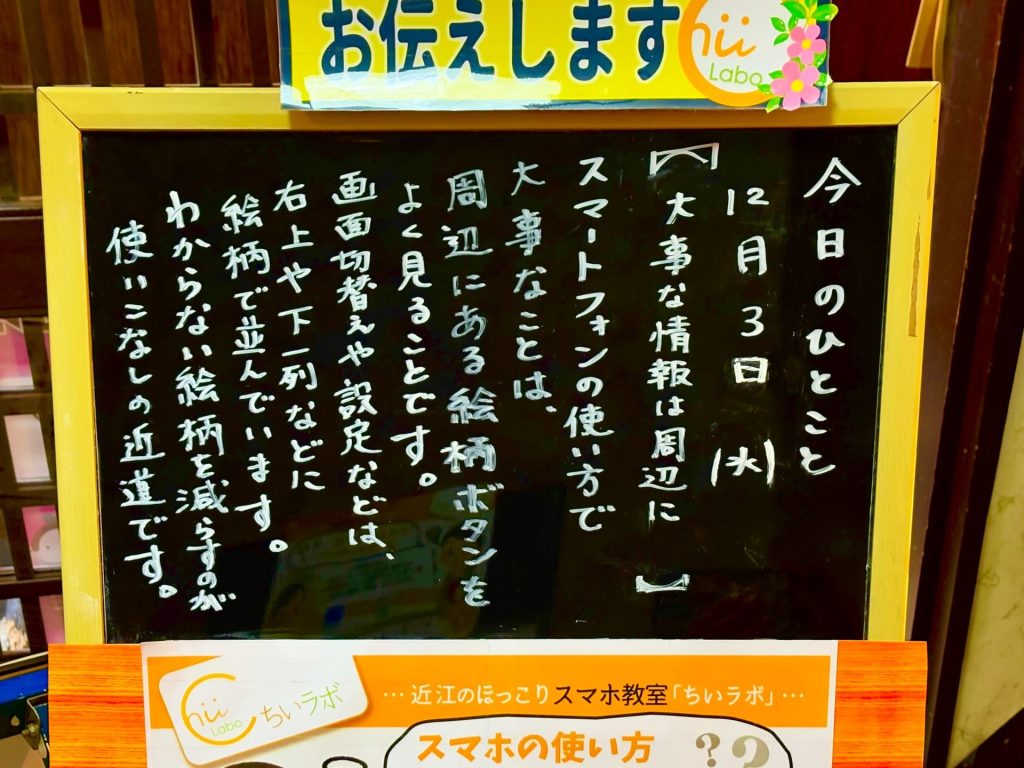 お伝えします
Chii
Labo
今日のひとこと
12月3日(火)
【大事な情報は周辺に】
スマートフォンの使い方で
大事なことは、
周辺にある絵柄ボタンを
よく見ることです。
画面切替えや設定などは、
右上や下一列などに
絵柄で並んでいます。
わからない絵柄を減らすのが
使いこなしの近道です。
Chii
Labo
ちいラボ
…近江のほっこりスマホ教室「ちいラボ」…
スマホの使い方
??